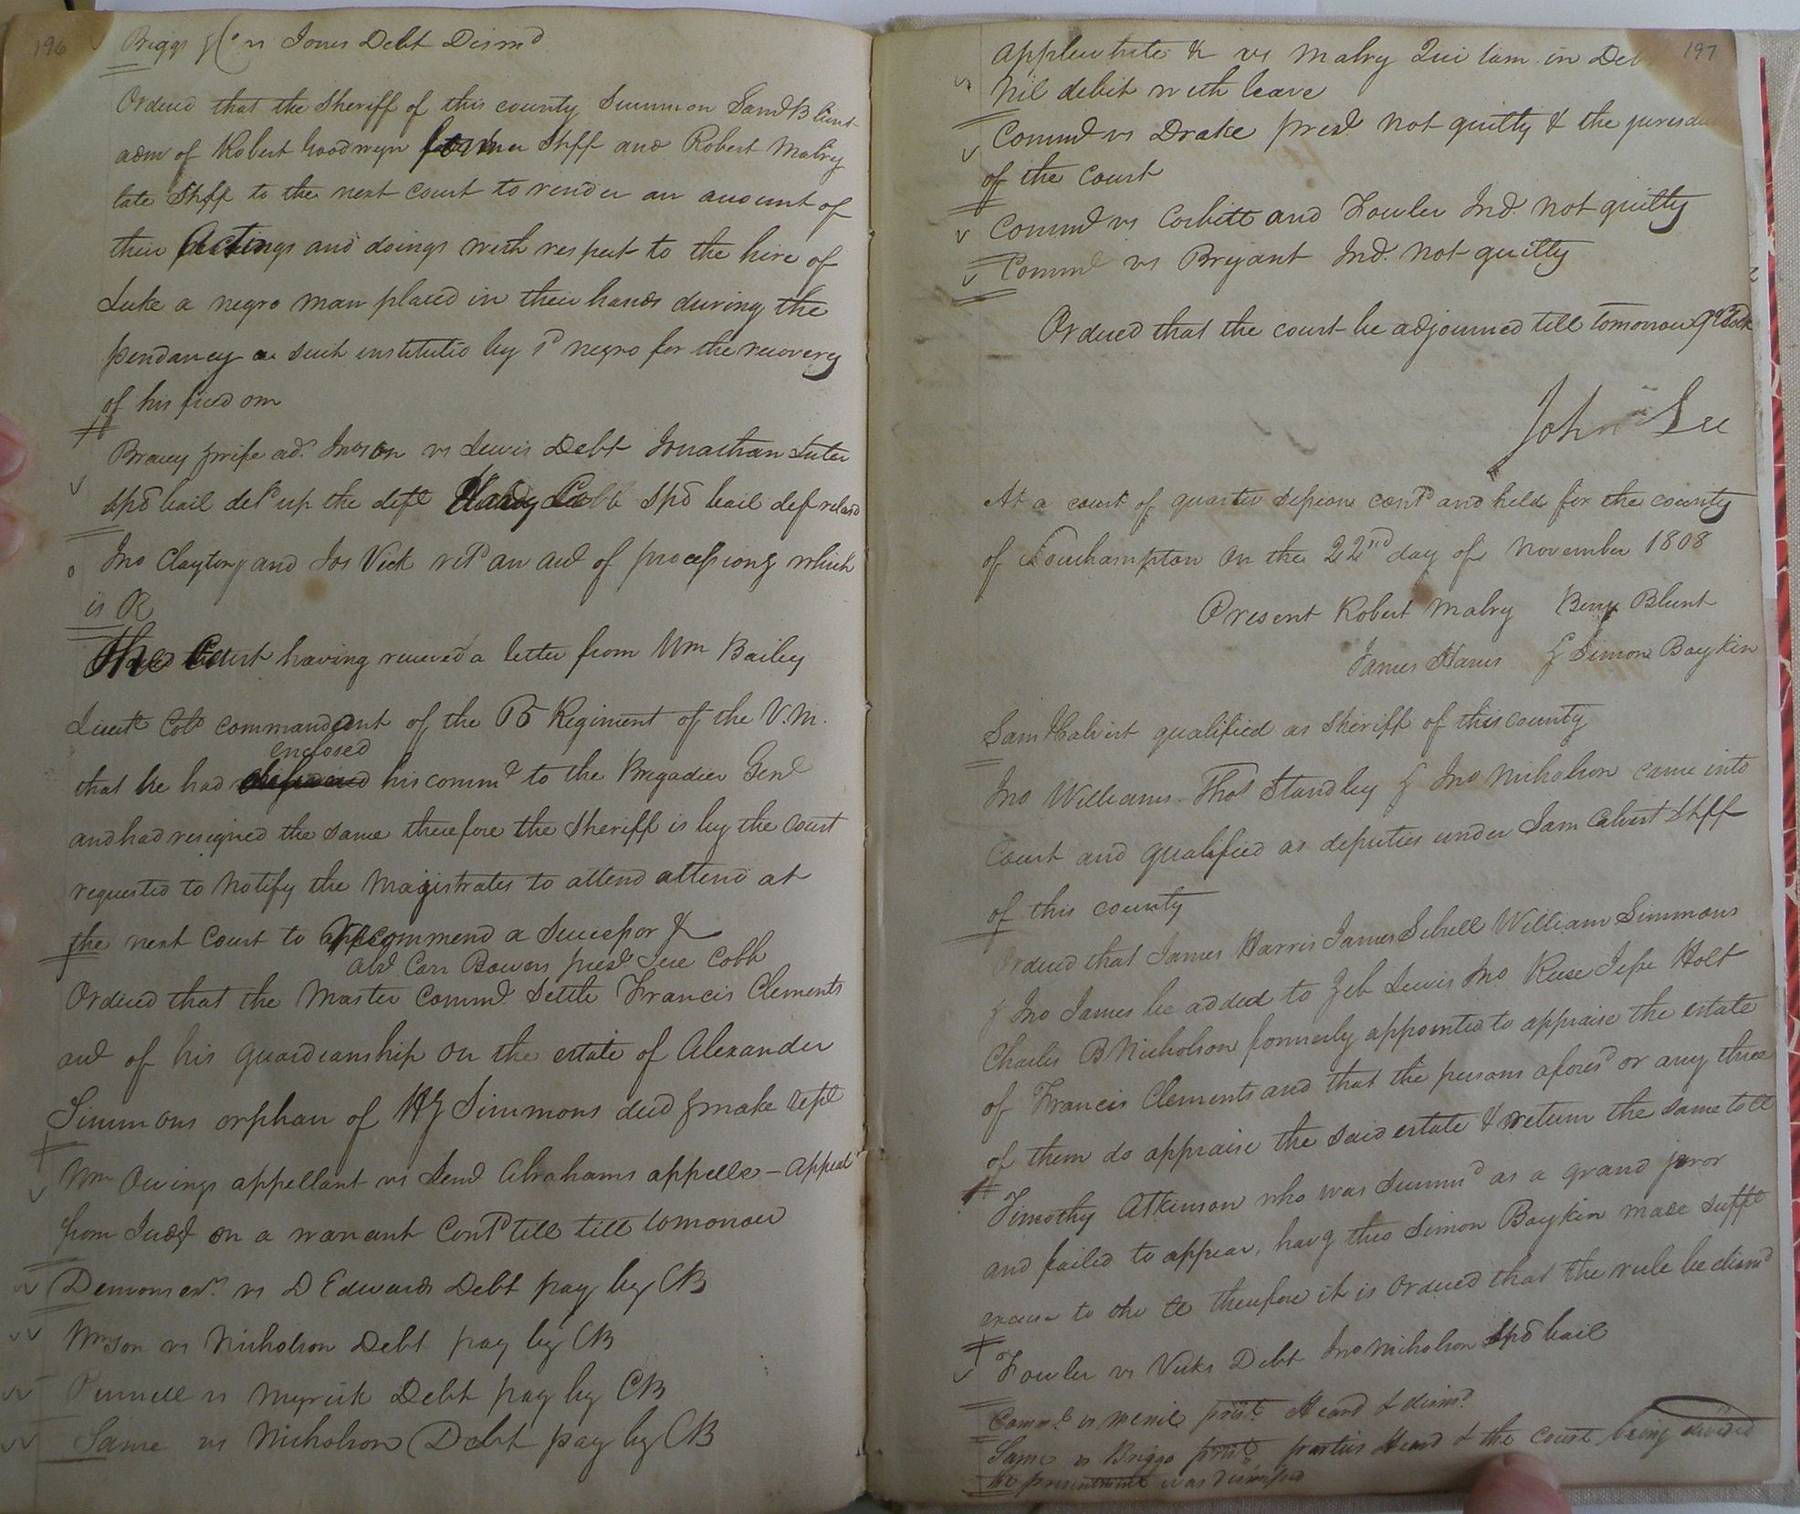 196
Briggs & Co vs Jones Debt Dismd
Ordered that the Sheriff of this county Summon Saml Blunt
adm of Robert Goodwyn former Shff and Robert Mabry
late Shff to the next court to render an account of
their Actings and doings with respect to the hire of
Luke a negro man placed in their hands during the
pendancy a suit institutid by sd negro for the recovery
of his freedom
Bracey & wife ad. vs Lewis Debt Jonathan Luter
spd bail deld up the deft Hardy Cobb spd bail def relasd
Jno Clayton and Jos Vick retd an acct of processiong which
is OR
The Court having received a letter from Wm Bailey
Lieut Colo commandant of the 65 Regiment of the V.M.
enclosed
that he had his commn to the Brigadier Genl
and had resigned the same therefore the Sheriff is by the Court
requested to Notify the Magistrates to attend attend at
the next Court to recommend a Successor &
Abst Carr Bowers prest Jere Cobb
Ordered that the Master Commr Settle Francis Clements
acct of his guardianship on the estate of Alexander
Simmons orphan of HJ Simmons decd & make rept
Wm Owings appellant vs Lewd Abrahams appelle - Appeal
from Judgt on a warrant Contd till till tomorrow
Demons exr. vs D Edwards Debt pay by CB
Wmson vs Nicholson Debt pay by CB
Purnell vs Myrick Debt pay by CB
Same vs Nicholson Debt pay by CB
197
Applewhite & vs Mabry Qui tam in Deb
Nil debit with leave
Commd vs Drake presd Not guilty & the
of the Court
Commd vs Corbitt and Fowler Ind. not guilty
Commd vs Bryant Ind. not guilty
Ordered that the court be adjourned till tomorrow 9 oClock
John Lee
At a court of quarter sessions contd and held for the county
of Southampton on the 22nd day of November 1808
Present Robert Mabry Benj Blunt
James Harris & Simon Boykin
Saml Calvert qualified as Sheriff of this county
Jno Williams Thos Standley & Jno Nicholson came into
Court and qualified as deputies under Sam Calvert Shff
of this county
Ordered that James Harris James Sebrell William Simmons
& Jno James be added to Zeb Lewis Jno Reese Jesse Holt
Charles B Nicholson formerly appointed to appraise the estate
of Francis Clements and that the persons aforesd or any three
of them do appraise the said estate & return the same to Ct
Timothy Atkinson who was summd as a grand juror
and failed to appear, havg thro Simon Boykin made sufft
excuse to the Ct therefore it is ordered that the rule be dismd
Fowler vs Vicks Debt Jno Nicholson spd bail
Commd vs prest Heard & dismd
Same vs Briggs prest parties Heard & the court being divided
the presentment was dismissed